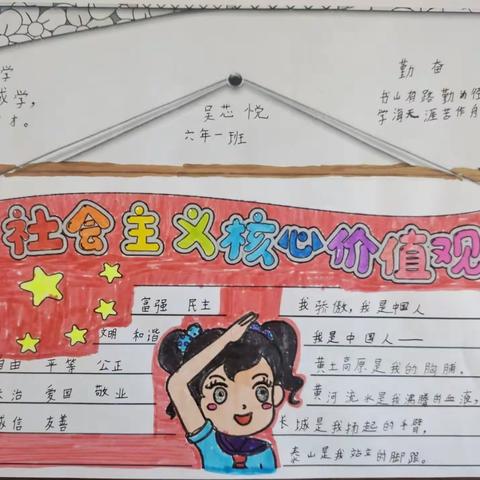 学
成学,
才。
吴芯悦
六年一班
勤奋
书山有路勤为径
学海无涯苦作舟
社会主义核心价值观
富强 民主
文明 和谐
自由 平等 公正
法治 爱国 敬业
诚信 友善
我骄傲,我是中国人
我是中国人——
黄土高原是我的胸脯。
黄河流水是我沸腾的血液,
长城是我扬起的手臂,
泰山是我站立的脚跟。